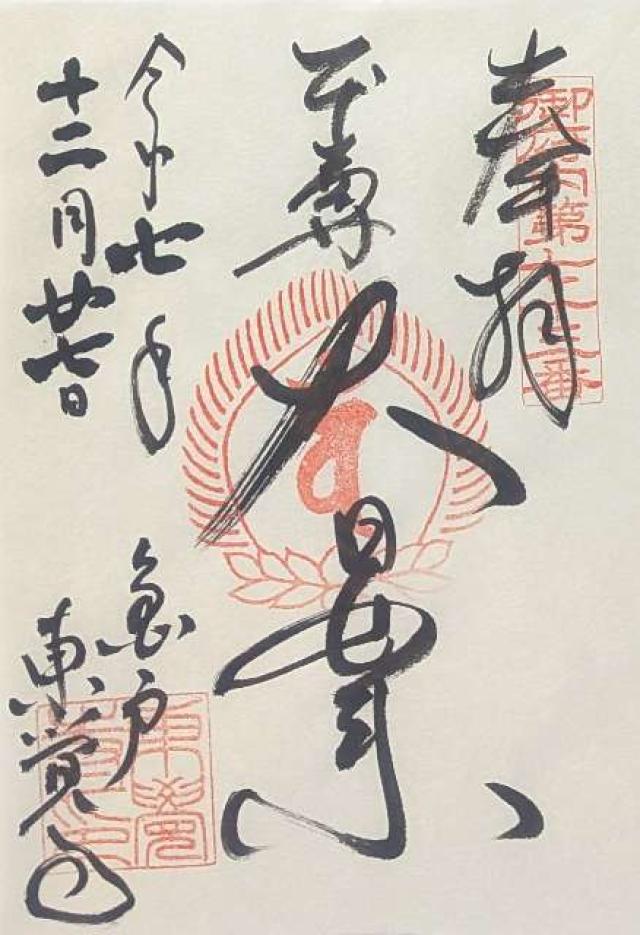 御府内第七十三番
奉拝
本尊 大日如来
令和七年
十二月廿七日
亀戸
東覚寺